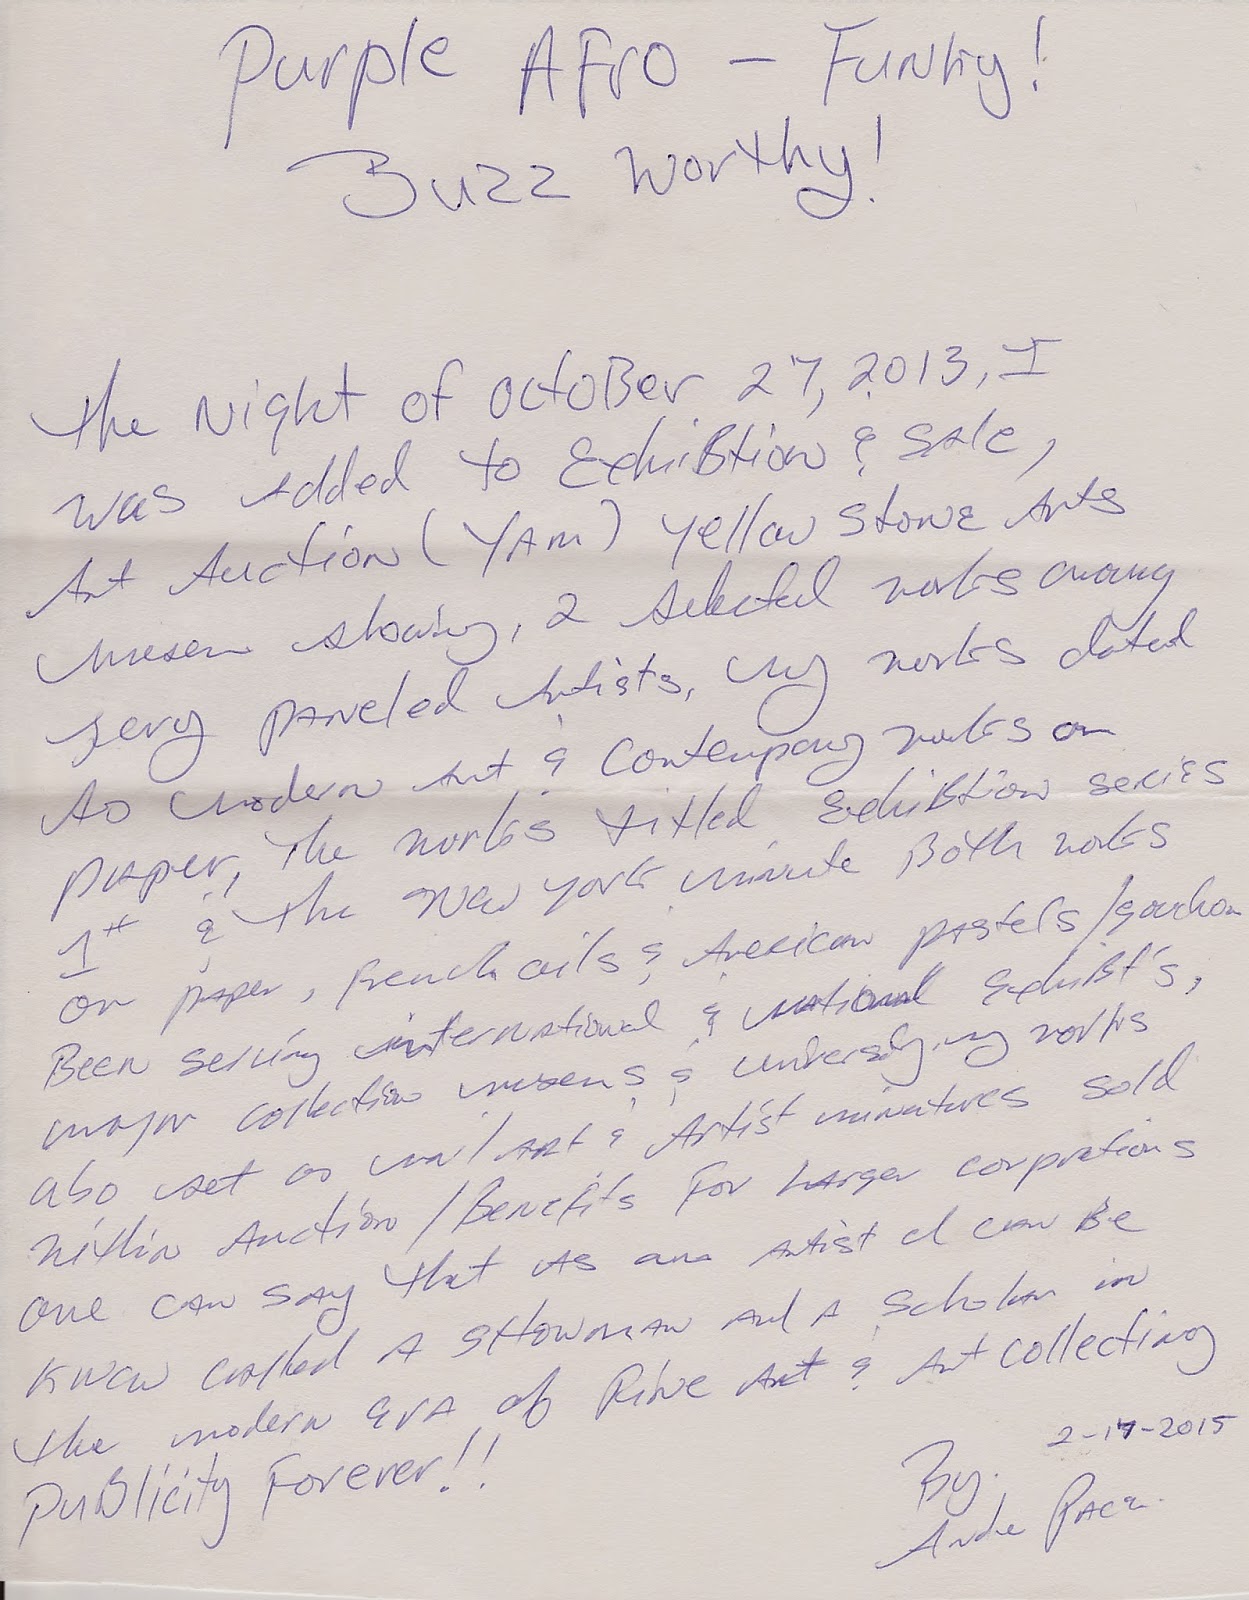 Purple Afro - Funky!
Buzz Worthy!
The Night of October 27, 2013, I
was added to ExhiBtion & Sale,
Art Auction (YAM) Yellow Stone Arts
Musem showing, 2 selected works among
paneled Artists, my works dated
to modern Art & Contempary works on
paper, The works titled ExhiBtion series
1st & The New York minute Both works
on paper, French oils & American pastels/
Been serving international & national ExhiBt's,
major collection musems & my works
also set as Art & Artist miniatures sold
within Auction/Benefits For Larger corprations
one can say that as an artist I can Be
called A SHowman and A scholar in
the modern era of Fine Art & Art collecting
PuBlicity Forever!!
2-17-2015
By.
Andre Pace